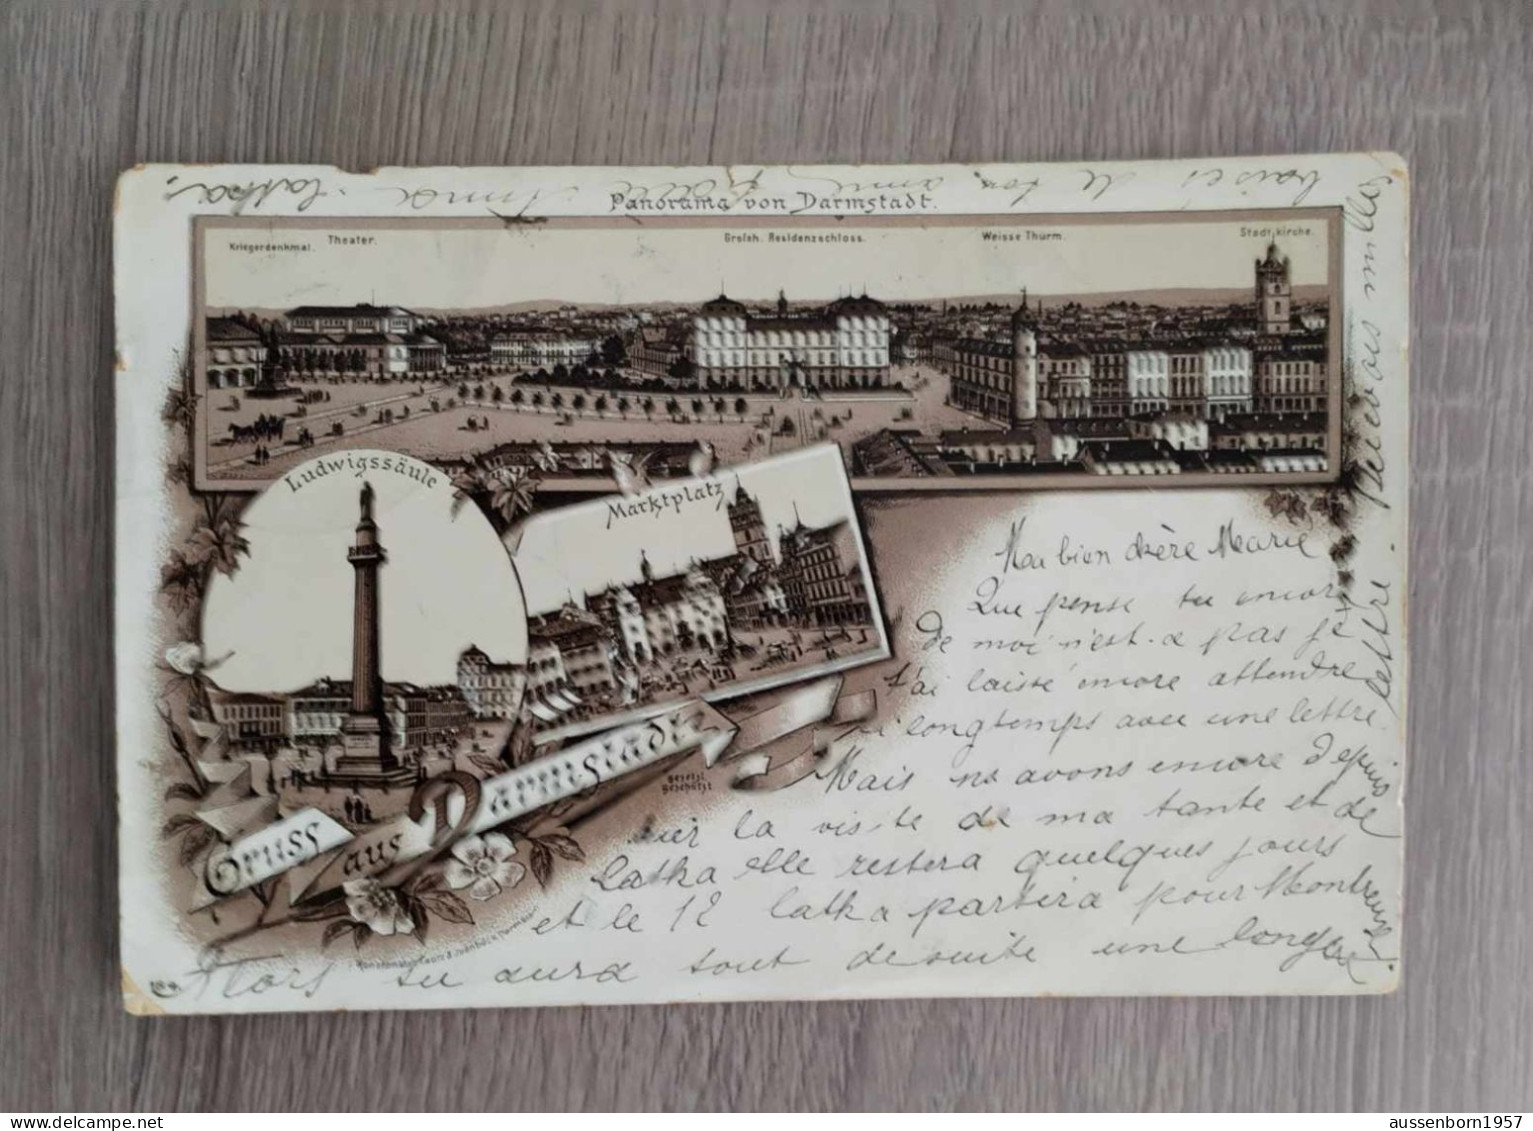 Panorama von Darmstadt.
Kriegerdenkmal.
Theater.
Grolsh. Residenzschloss.
Weisse Thurm.
Stadtkirche.
Ludwigssäule
Marktplatz
Gruss aus Darmstadt
gesetzl.
geschützt
Ma bien chère Marie
Que pense tu encore
de moi n'est-ce pas je
t'ai laisté encore attendre
si longtemps avec une lettre
Mais ns avons encore depuis
hier la visite de ma tante et de
Latka elle restera quelques jours
et le 12 Latka partira pour Montreux.
Alors tu aura tout de suite une longue
lettre.
Recevois mille
baisés de ton amie
Anna Latka.
aussenborn1957